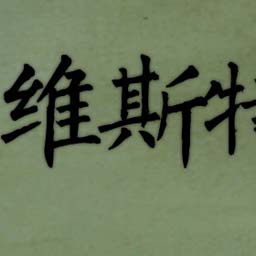 维斯特